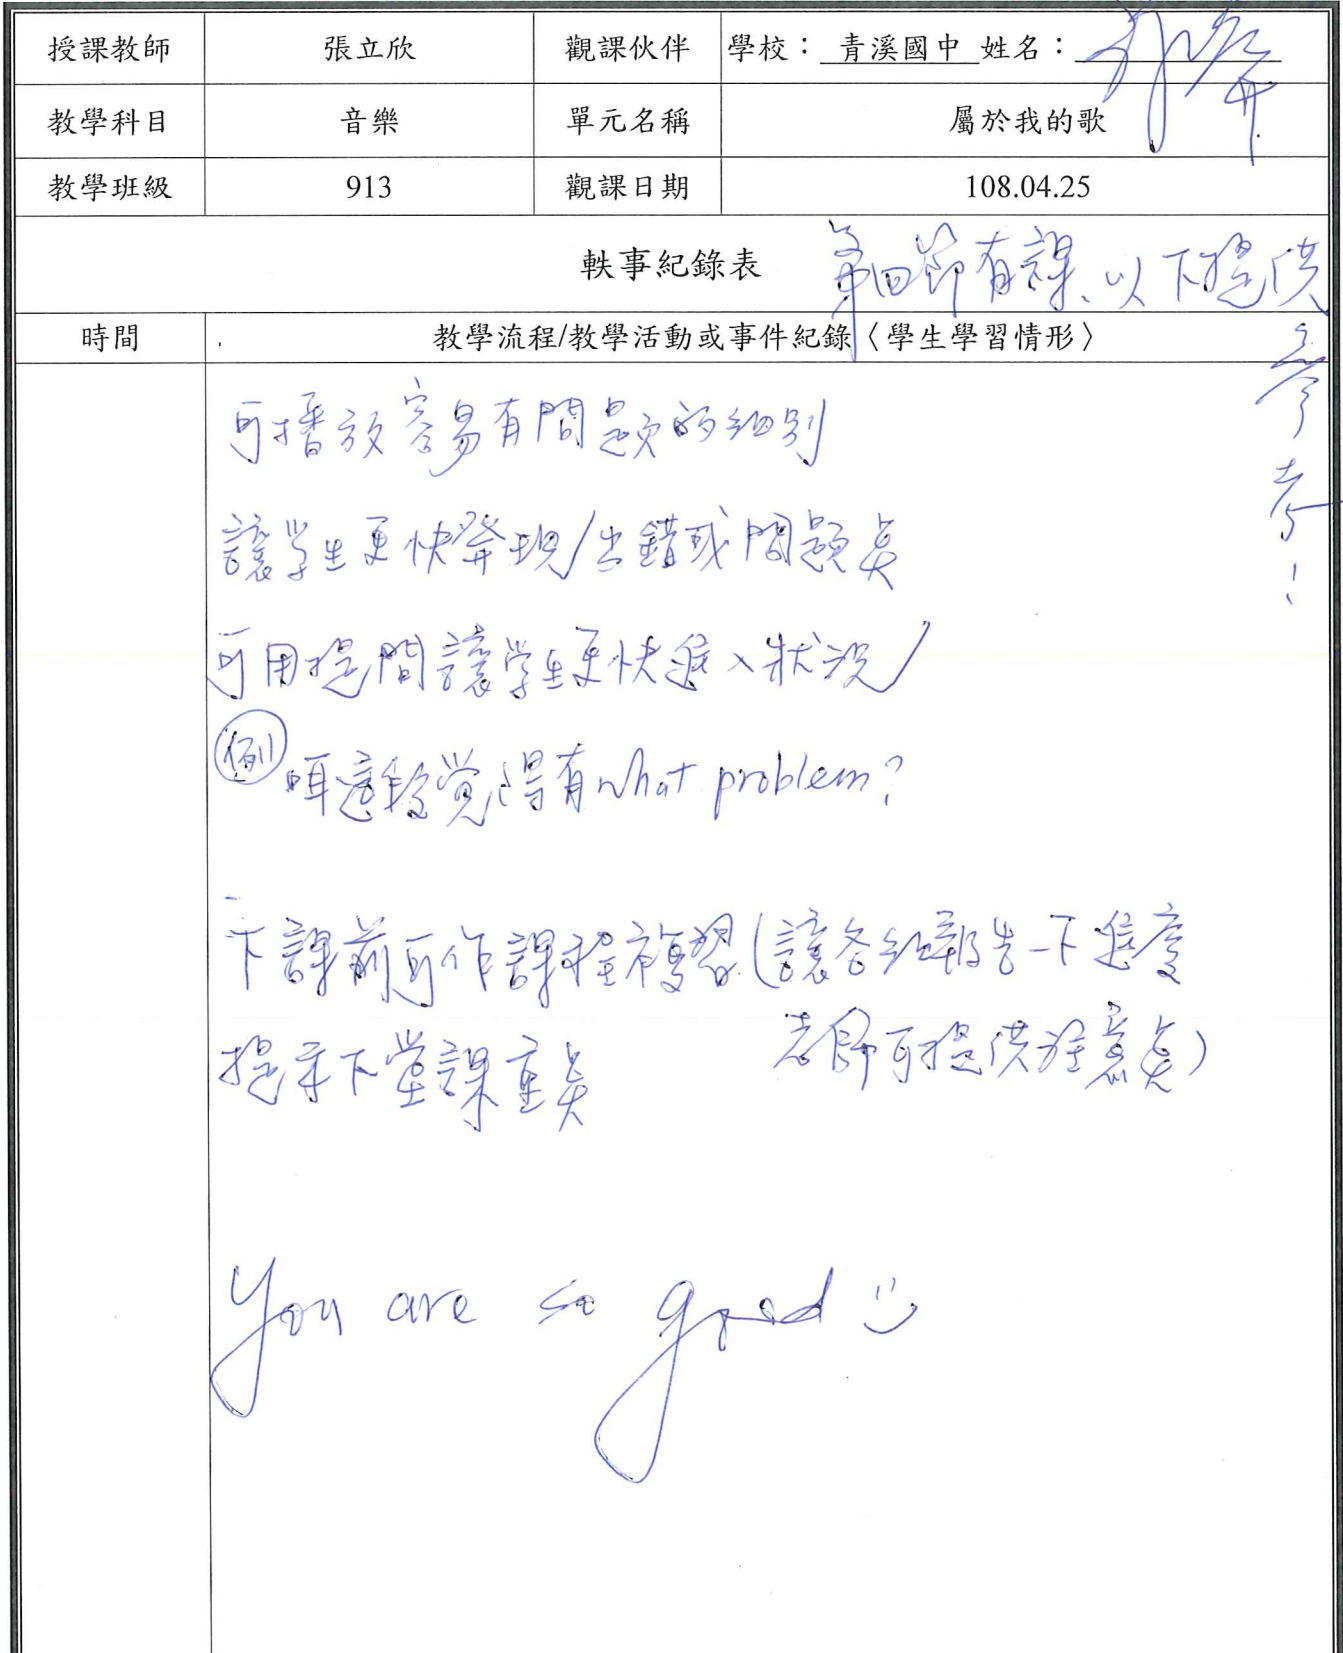 授課教師 張立欣 觀課伙伴 學校：青溪國中 姓名：
教學科目 音樂 單元名稱 屬於我的歌
教學班級 913 觀課日期 108.04.25
軼事紀錄表 第四節有課、以下提供參考！
時間 教學流程/教學活動或事件紀錄〈學生學習情形〉
可播放容易有問題的組別
讓學生更快發現/出錯或問題點
可用提問讓學生更快進入狀況/
例 這段覺得有what problem?
下課前可作課程複習(讓各組報告一下進度
老師可提供注意點)
提示下堂課重點
You are so good